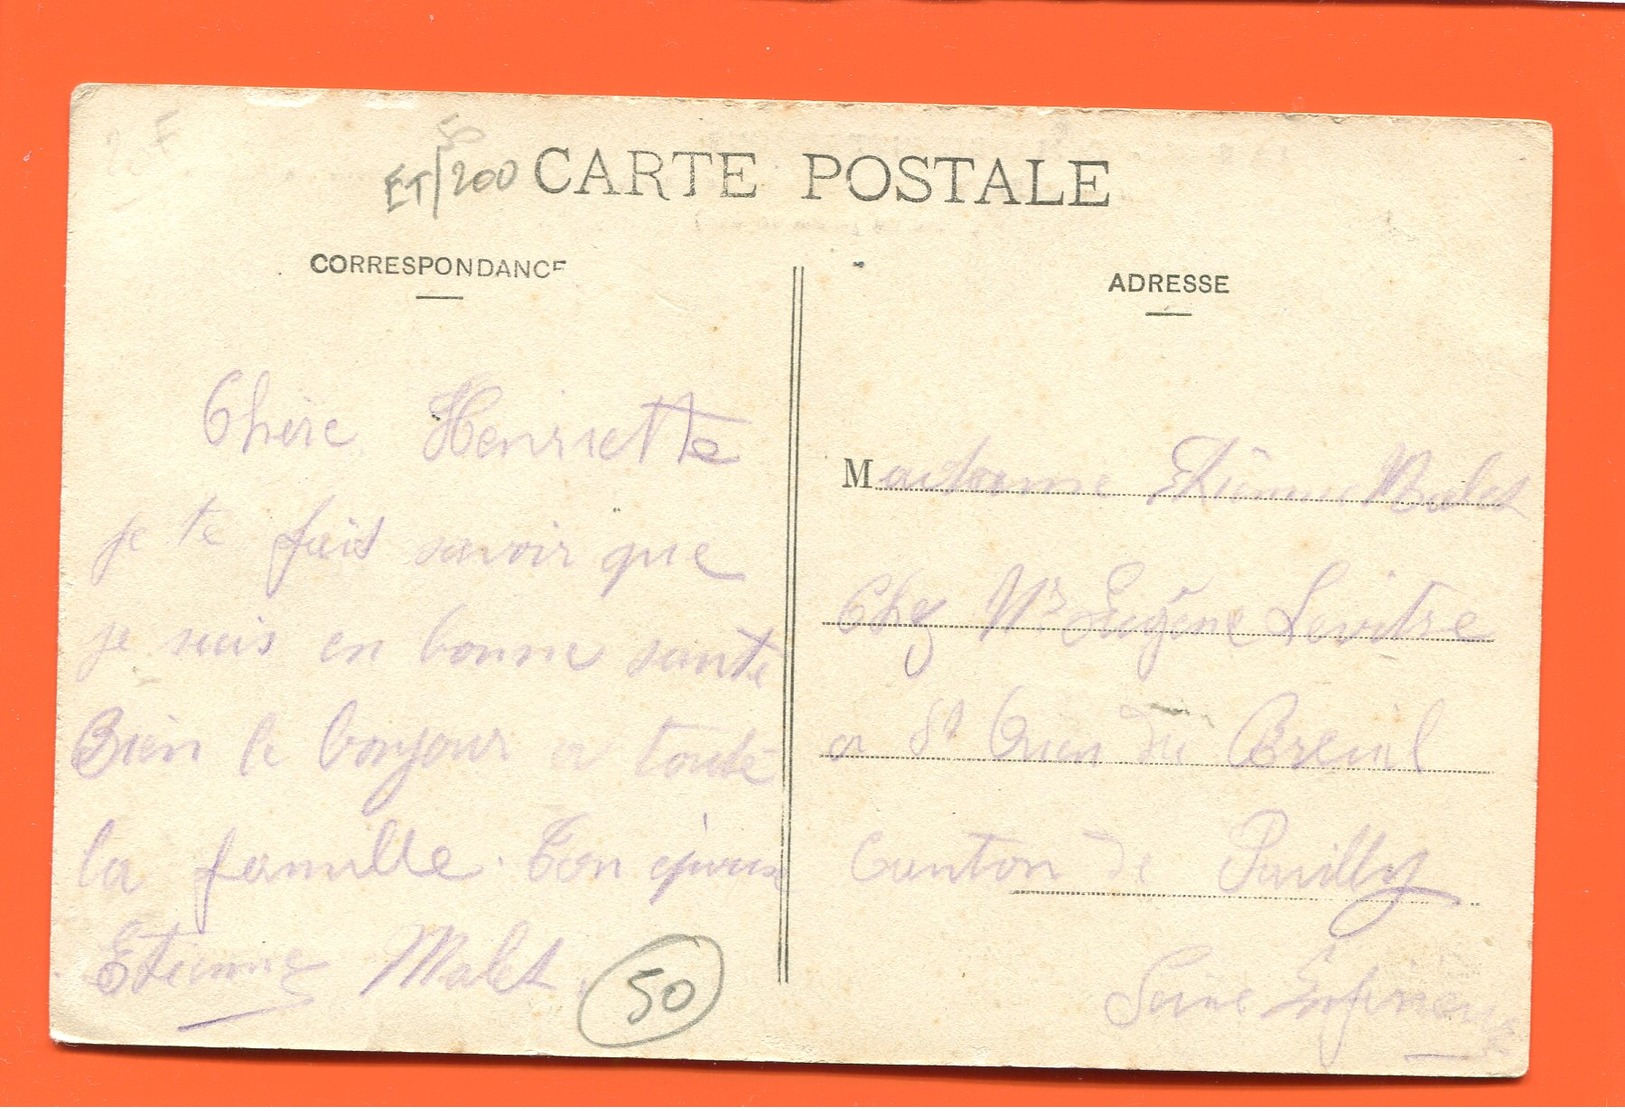 2 F
50
ET/200
CARTE POSTALE
CORRESPONDANCE
ADRESSE
Chère Henriette
je te fait savoir que
je suis en bonne santé
Bien le bonjour a toute
la famille. Ton époux
Etienne Malet.
50
Madame Etienne Malet
Chez Mr Eugène Levitre
a St Ouen du Breuil
Canton de Pavilly
Seine Inferieure